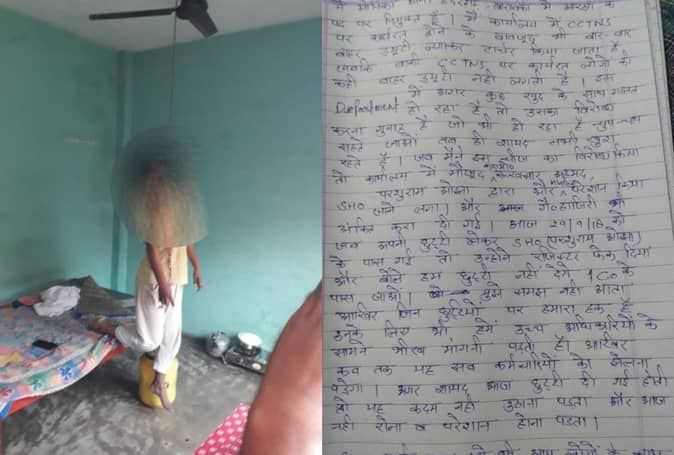 पद पर नियुक्त है। मैं कार्यालय में CCTNS
पर कार्यरत होने के बावजूद भी बार-बार
बाहर ड्यूटी लगाकर टार्चर किया जाता है
जबकि बाकी CCTNS पर कार्यरत लोगों की
कही बाहर ड्यूटी नही लगती है। इस
Department में अगर कुछ खुद के साथ गलत
हो रहा है तो उसका विरोध
करना गुनाह है जो भी हो रहा है चुप-चाप
सहते जाओ तब ही शायद सभी खुश
रहते है। जब मैंने इस चीज का विरोध किया
तो कार्यालय में मौजूद रुखसार अहमद,
SHO परशुराम ओझा द्वारा और परेशान किया
जाने लगा। और गैरहाजिरी भी
अंकित करा दी गई। आज 29/9/18 को
जब अपनी छुट्टी लेकर SHO (परशुराम ओझा)
के पास गई तो उन्होंने रजिस्टर फेंक दिया
और बोले हम छुट्टी नही देंगे। CO के
पास जाओ। मुझे समझ नही आता
आखिर जिन छुट्टियों पर हमारा हक है
उनके लिए भी हमें उच्च अधिकारियों के
सामने भीख मांगनी पड़ती है। आखिर
कब तक यह सब कर्मचारियों को झेलना
पड़ेगा। अगर शायद आज छुट्टी दी गई होती
तो यह कदम नही उठाना पड़ता और आज
नही रोना व परेशान होना पड़ता।